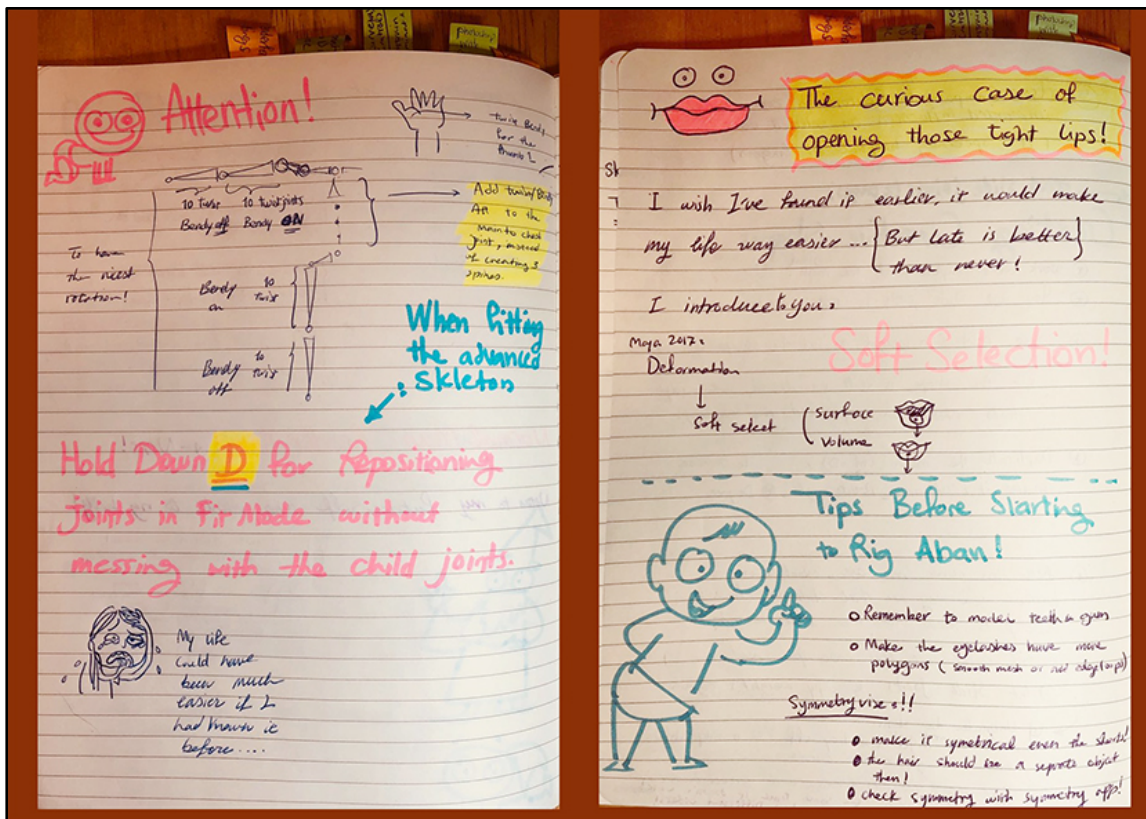 Attention!
twist Bendy
for the
thumb 2
10 Twist 10 twist joints
Bendy off Bendy ON
To have
the nicest
rotation!
Add twist/Bendy
to the
joint, instead
of creating 3
spines.
Bendy 10
on twist
Bendy 10
off twist
When fitting
the advanced
Skleton
Hold Down D for Repositioning
joints in Fit Mode without
messing with the child joints.
My life
Could have
been much
easier if I
had known it
before....
The curious case of
opening those tight lips!
I wish I've found it earlier, it would make
my life way easier ... {But late is better
than never!}
I introduce to you:
Maya 2017:
Soft Selection!
Deformation
Soft select
surface
volume
Tips Before Starting
to Rig Aban!
Remember to model teeth & gum
Make the eyelashes have more
polygons (smooth mesh or not edgeloops)
Symmetryvise:!!
make it symetrical even the shorts!
the hair should be a seprate object
then!
check symmetry with symmetry app!